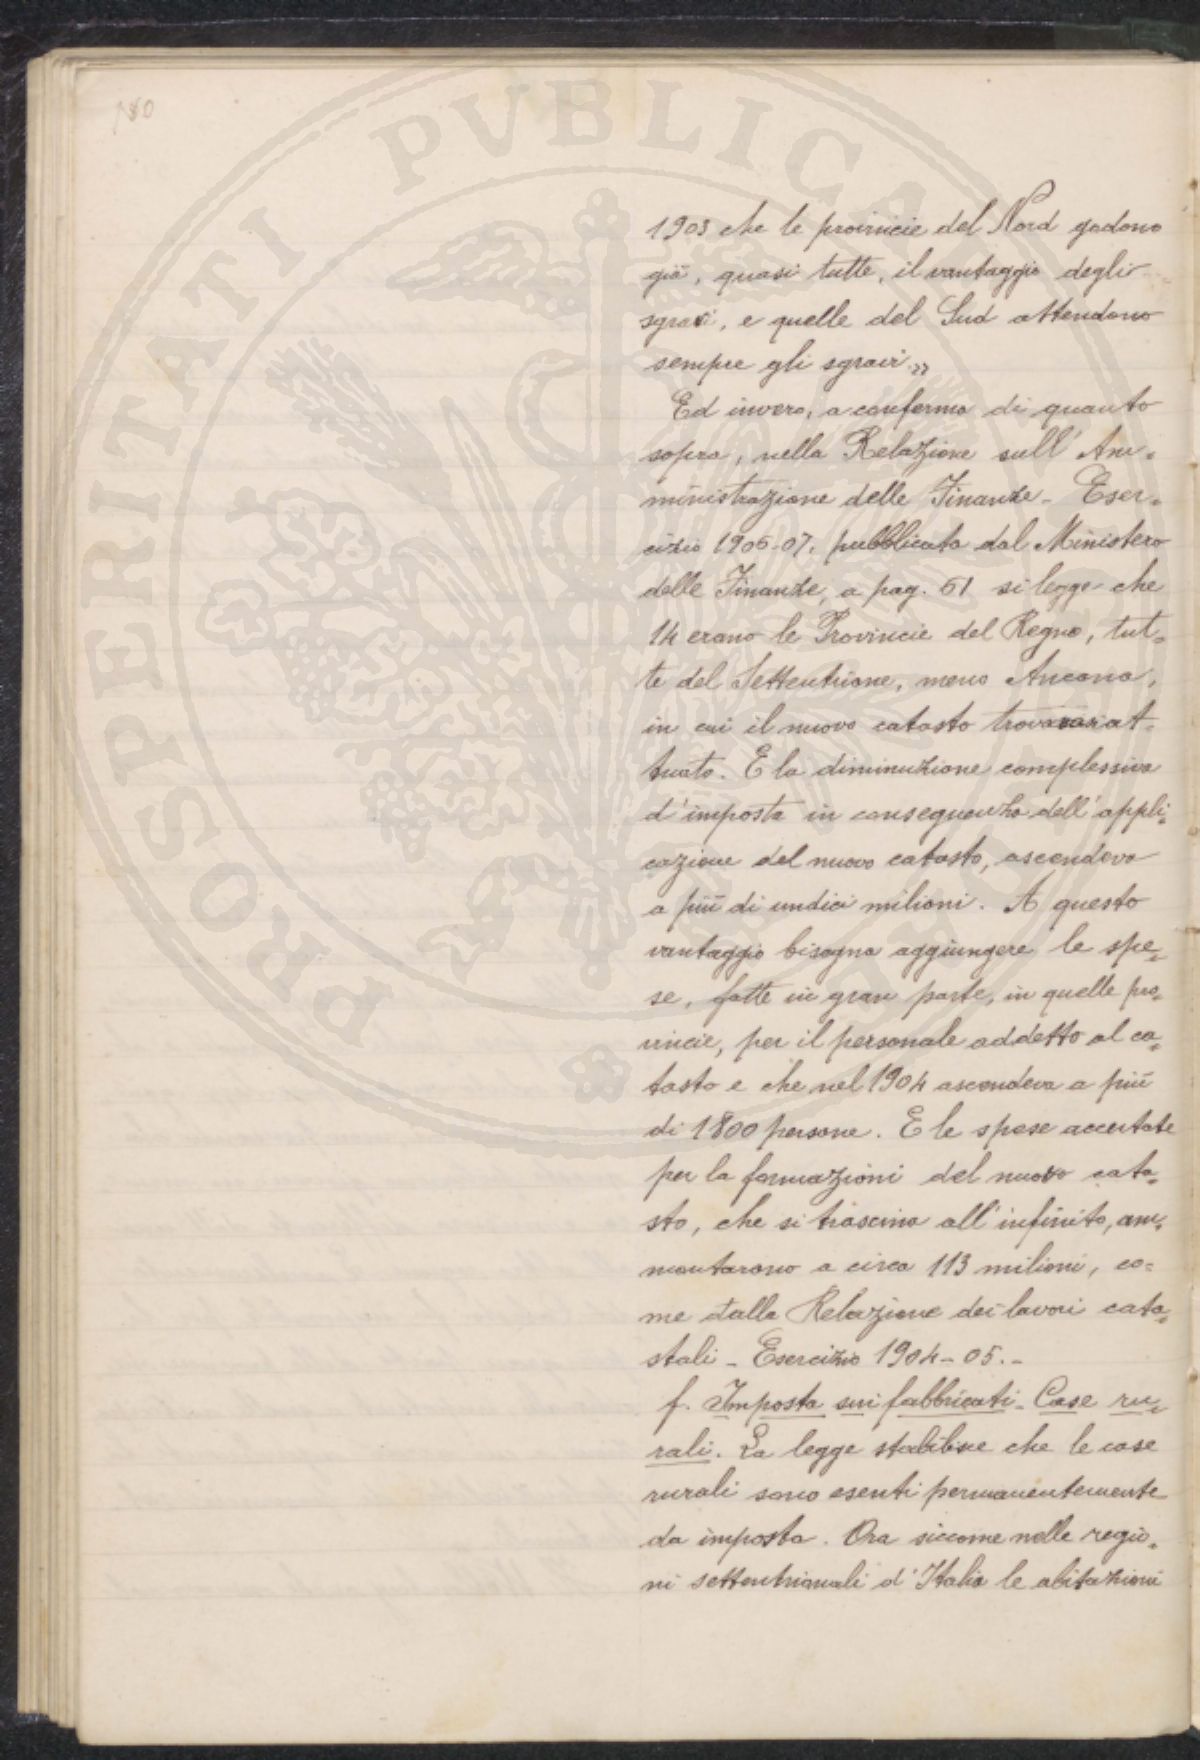 180
PROSPERITATI PVBLICAE
1903 che le provincie del Nord godono
già, quasi tutte, il vantaggio degli
sgravi, e quelle del Sud attendono
sempre gli sgravi„
Ed invero, a conferma di quanto
sopra, nella Relazione sull'Am-
ministrazione delle Finanze - Eser-
cizio 1906-07, pubblicata dal Ministero
delle Finanze, a pag. 61 si legge che
14 erano le Provincie del Regno, tut-
te del Settentrione, meno Ancona,
in cui il nuovo catasto trovavasi at-
tuato. E la diminuzione complessiva
d'imposta in conseguenza dell'appli-
cazione del nuovo catasto, ascendeva
a più di undici milioni. A questo
vantaggio bisogna aggiungere le spe-
se, fatte in gran parte, in quelle pro-
vincie, per il personale addetto al ca-
tasto e che nel 1904 ascendeva a più
di 1800 persone. E le spese accertate
per la formazioni del nuovo cata-
sto, che si trascina all'infinito, am-
montarono a circa 113 milioni, co-
me dalla Relazione dei lavori cata-
stali - Esercizio 1904-05.-
f. Imposta sui fabbricati - Case ru-
rali. La legge stabilisce che le case
rurali sono esenti permanentemente
da imposta. Ora siccome nelle regio-
ni settentrionali d'Italia le abitazioni